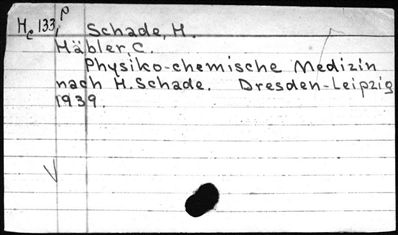 Hc 133, p Schade, H.
Häbler, C.
Physiko-chemische Medizin
nach H. Schade. Dresden-Leipzig
1939.